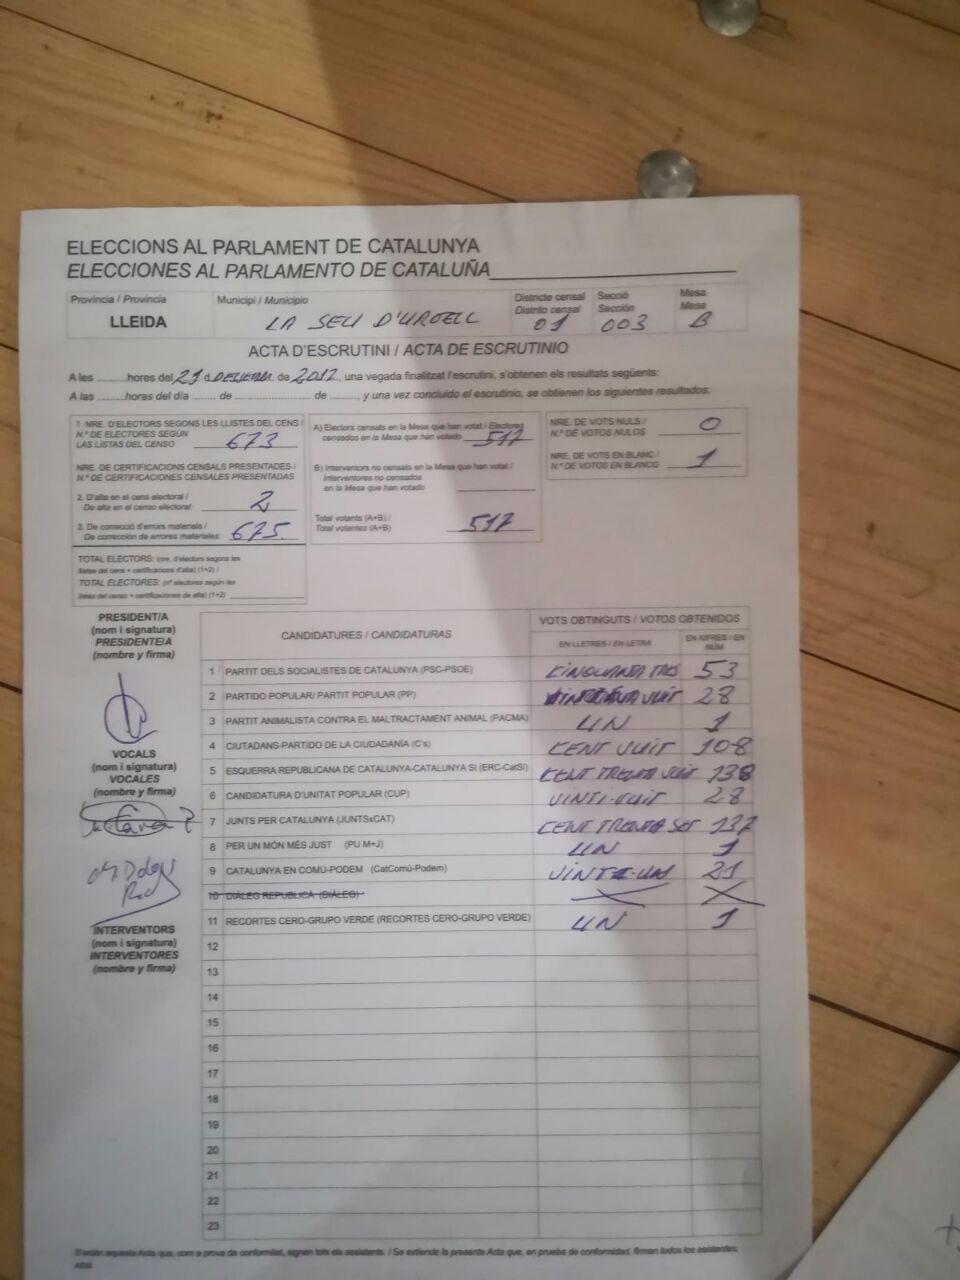 ELECCIONS AL PARLAMENT DE CATALUNYA
ELECCIONES AL PARLAMENTO DE CATALUÑA
Provincia / Provincia
LLEIDA
Municipi / Municipio
LA SEU D'URGELL
Districte censal
Distrito censal
01
Secció
Sección
003
Mesa
Mesa
B
ACTA D'ESCRUTINI / ACTA DE ESCRUTINIO
A les ..........hores del 21 d DESEMBRE de 2017, una vegada finalitzat l'escrutini, s'obtenen els resultats següents:
A las ..........horas del día ........ de .......................... de .........., y una vez concluido el escrutinio, se obtienen los siguientes resultados:
1. NRE. D'ELECTORS SEGONS LES LLISTES DEL CENS /
N.º DE ELECTORES SEGÚN
LAS LISTAS DEL CENSO 673
NRE. DE CERTIFICACIONS CENSALS PRESENTADES /
N.º DE CERTIFICACIONES CENSALES PRESENTADAS
2. D'alta en el cens electoral /
De alta en el censo electoral: 2
3. De correcció d'errors materials /
De corrección de errores materiales: 675
TOTAL ELECTORS: (nre. d'electors segons les
llistes del cens + certificacions d'alta) (1+2) /
TOTAL ELECTORES: (nº electores según las
listas del censo + certificaciones de alta) (1+2)
A) Electors censats en la Mesa que han votat / Electores
censados en la Mesa que han votado 517
B) Interventors no censats en la Mesa que han votat /
Interventores no censados
en la Mesa que han votado
Total votants (A+B) /
Total votantes (A+B) 517
NRE. DE VOTS NULS /
N.º DE VOTOS NULOS 0
NRE. DE VOTS EN BLANC /
N.º DE VOTOS EN BLANCO 1
PRESIDENT/A
(nom i signatura)
PRESIDENTE/A
(nombre y firma)
VOCALS
(nom i signatura)
VOCALES
(nombre y firma)
INTERVENTORS
(nom i signatura)
INTERVENTORES
(nombre y firma)
CANDIDATURES / CANDIDATURAS
VOTS OBTINGUTS / VOTOS OBTENIDOS
EN LLETRES / EN LETRA
EN XIFRES / EN NÚM.
1 PARTIT DELS SOCIALISTES DE CATALUNYA (PSC-PSOE) CINQUANTA TRES 53
2 PARTIDO POPULAR/ PARTIT POPULAR (PP) 28
3 PARTIT ANIMALISTA CONTRA EL MALTRACTAMENT ANIMAL (PACMA) UN 1
4 CIUTADANS-PARTIDO DE LA CIUDADANÍA (C's) CENT VUIT 108
5 ESQUERRA REPUBLICANA DE CATALUNYA-CATALUNYA SÍ (ERC-CatSí) CENT TRENTA VUIT 138
6 CANDIDATURA D'UNITAT POPULAR (CUP) VINTI-VUIT 28
7 JUNTS PER CATALUNYA (JUNTSxCAT) CENT TRENTA SET 137
8 PER UN MÓN MÉS JUST (PU M+J) UN 1
9 CATALUNYA EN COMÚ-PODEM (CatComú-Podem) VINTI-UN 21
10 DIÀLEG REPUBLICÀ (DIÀLEG)
11 RECORTES CERO-GRUPO VERDE (RECORTES CERO-GRUPO VERDE) UN 1
12
13
14
15
16
17
18
19
20
21
22
23
S'estén aquesta Acta que, com a prova de conformitat, signen tots els assistents. / Se extiende la presente Acta que, en prueba de conformidad, firman todos los asistentes.